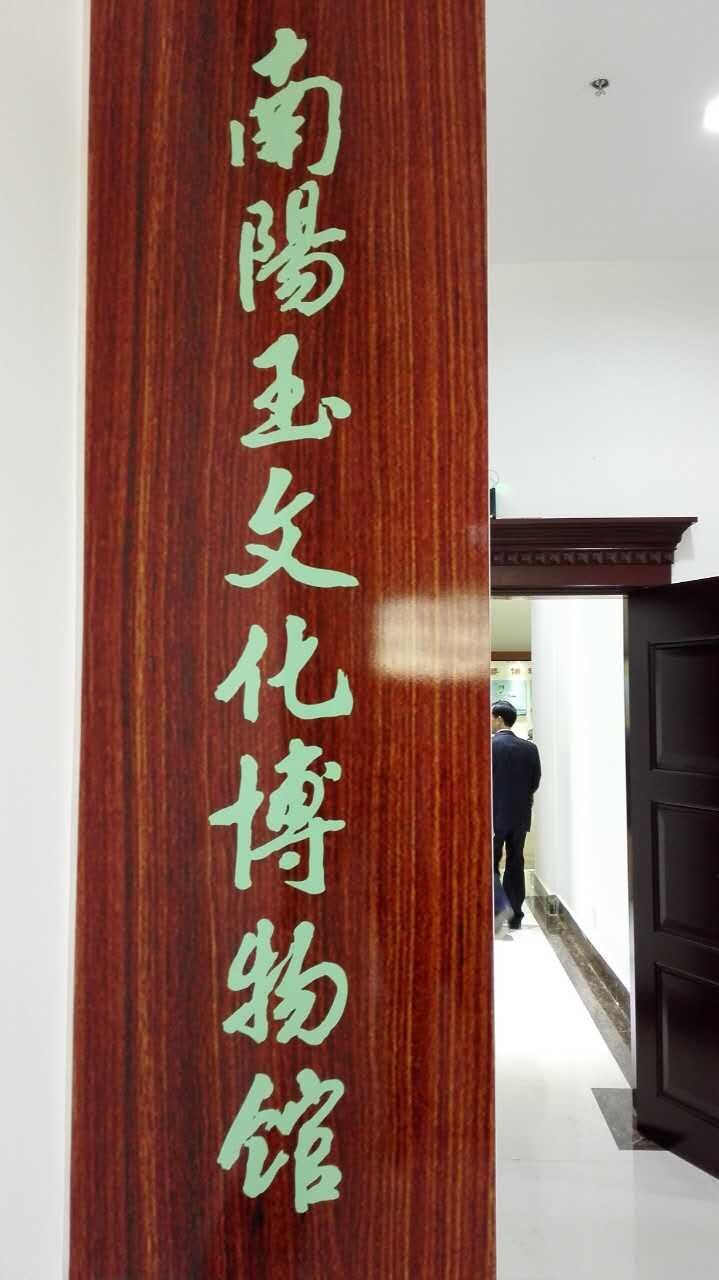 南陽玉文化博物馆